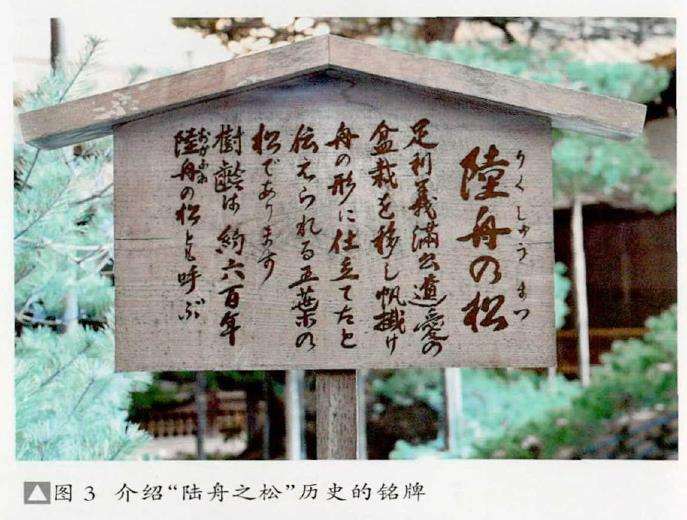 陸舟の松
りくしゅうまつ
足利義満公遺愛の
盆栽を移し帆掛け
舟の形に仕立てたと
伝えられる五葉の
松であります
樹齢は約六百年
陸舟の松とも呼ぶ
おかふね
图 3 介绍“陆舟之松”历史的铭牌